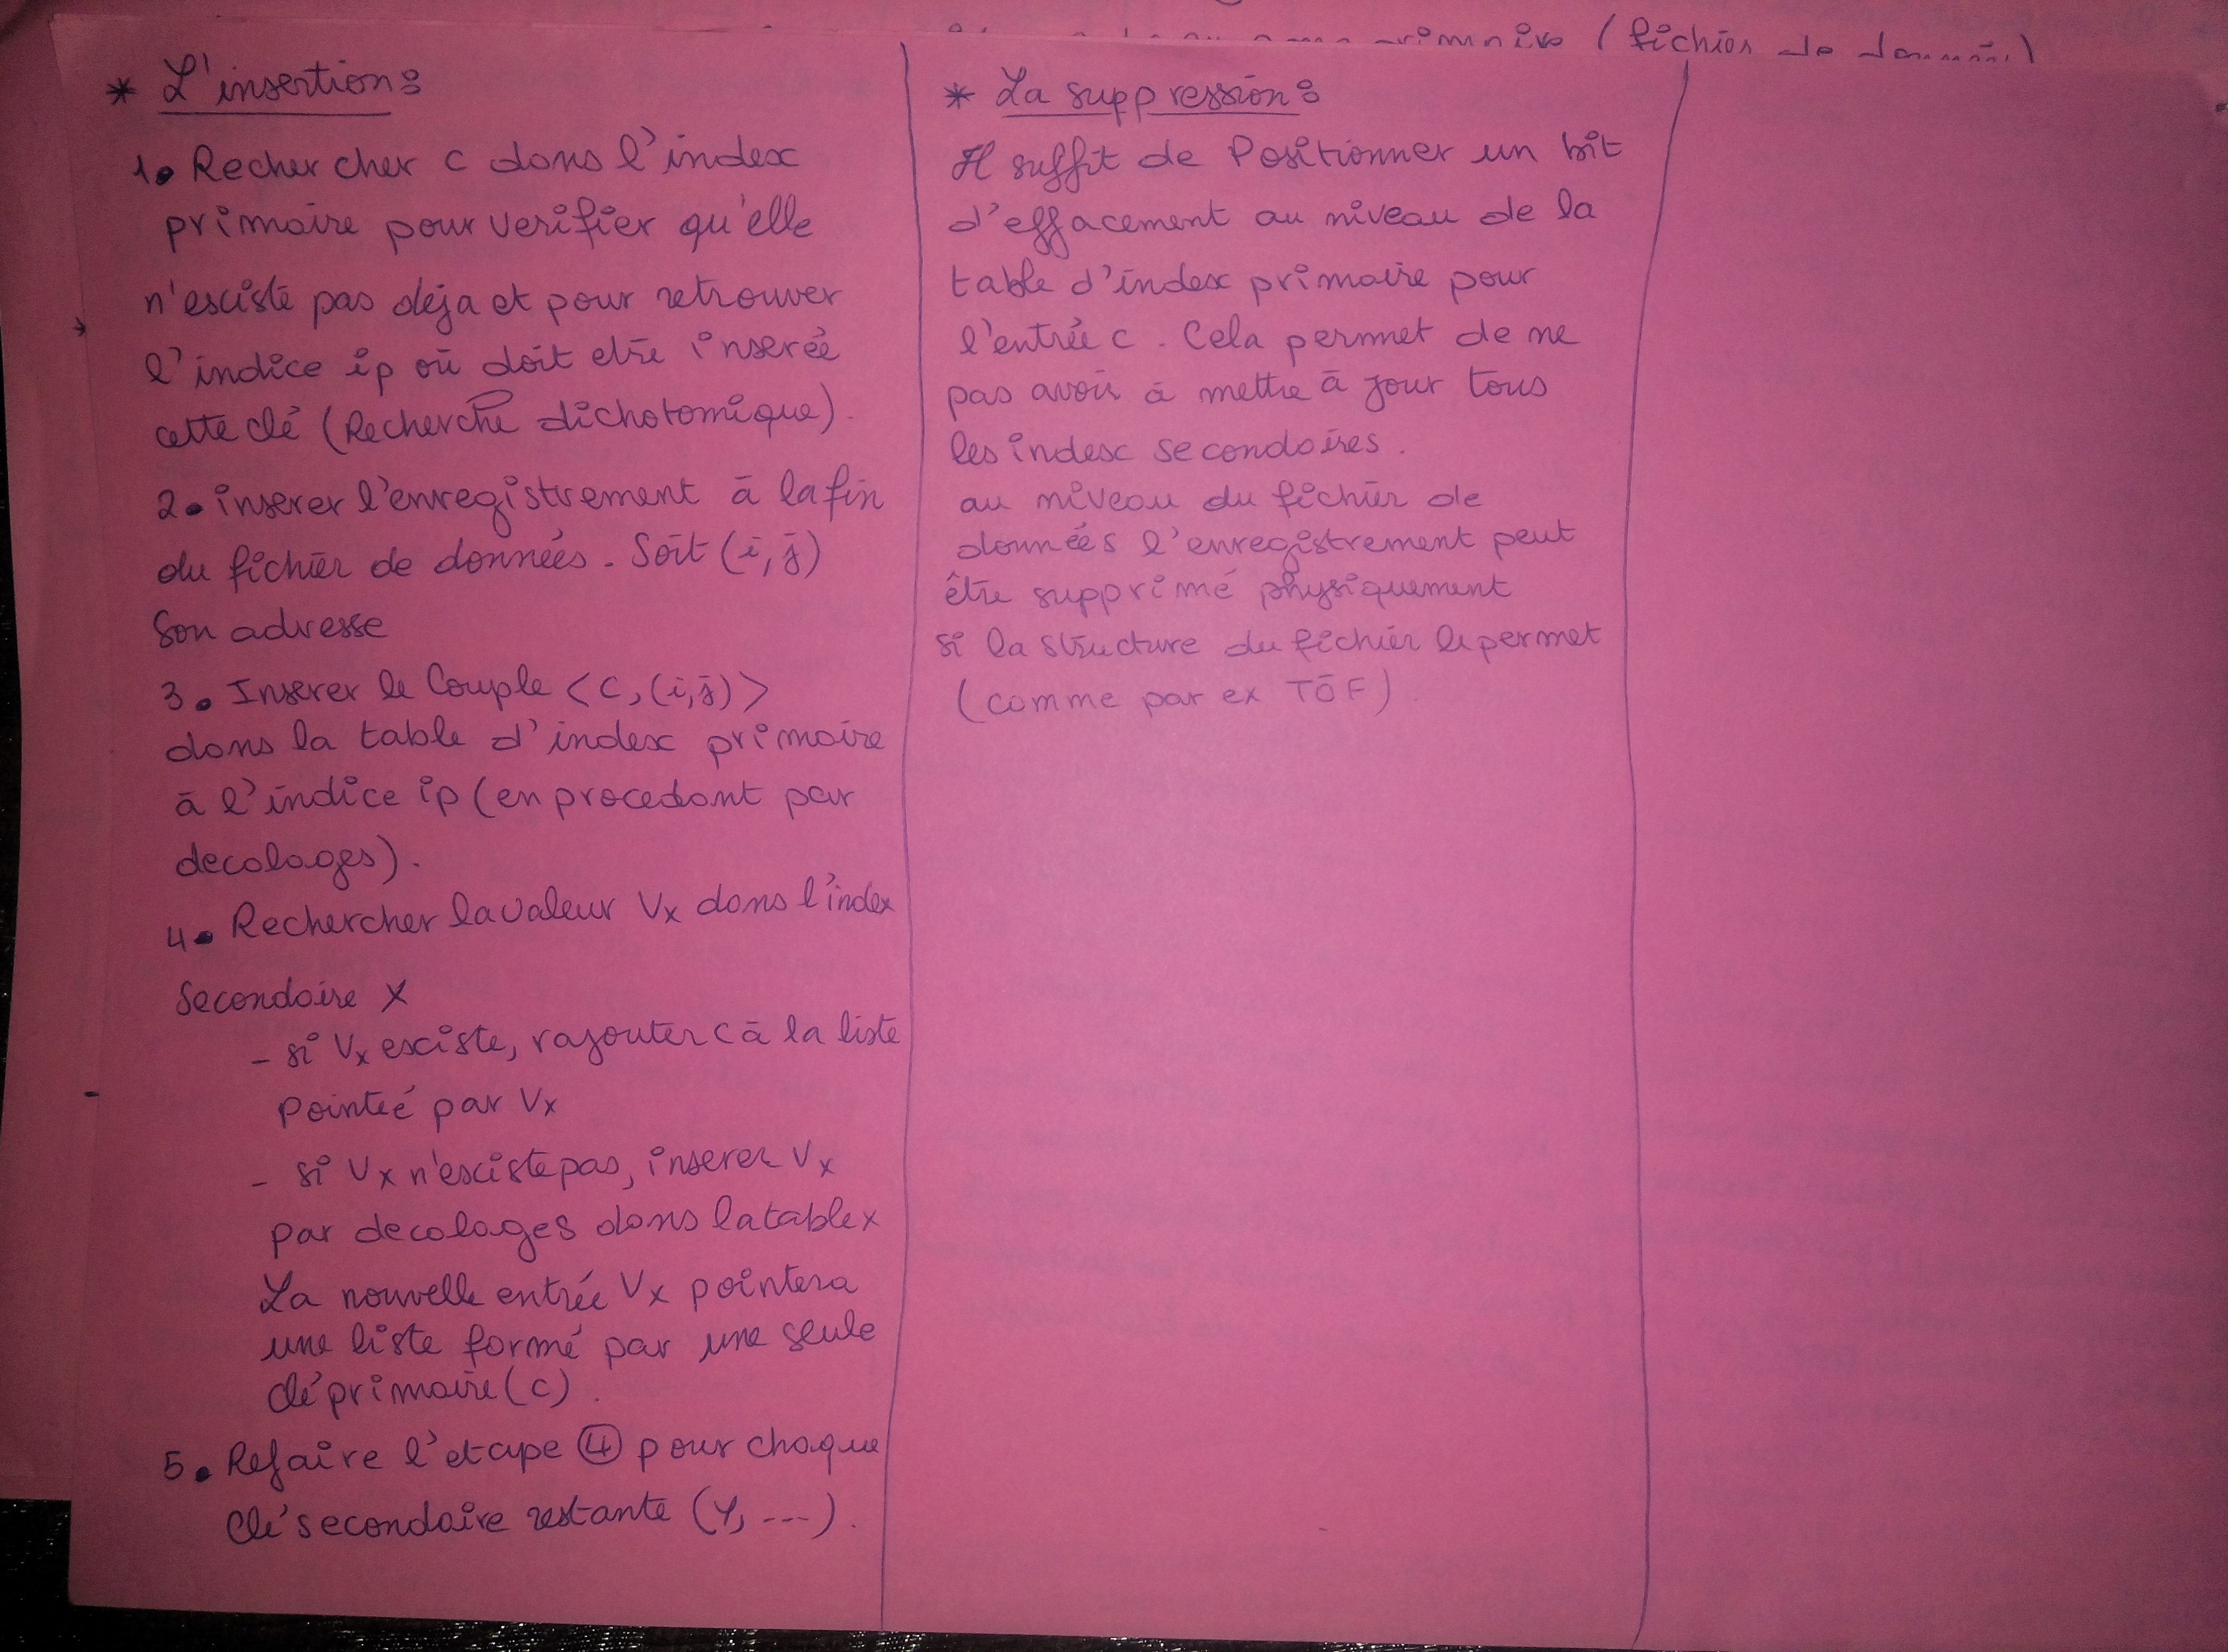 primaire (fichier de données)
* L'insertion :
1. Rechercher c dans l'index
primaire pour verifier qu'elle
n'existe pas deja et pour retrouver
l'indice ip où doit etre inserée
cette clé (Recherche dichotomique).
2. inserer l'enregistrement à la fin
du fichier de données. Soit (i,j)
Son adresse
3. Inserer le Couple <c,(i,j)>
dans la table d'index primaire
à l'indice ip (en procedant par
decalages).
4. Rechercher la valeur Vx dans l'index
Secondaire X
- si Vx existe, rajouter c à la liste
Pointée par Vx
- si Vx n'existe pas, inserer Vx
par decalages dans la table x
La nouvelle entrée Vx pointera
une liste formé par une seule
clé primaire (c).
5. Refaire l'etape ④ pour chaque
clé secondaire restante (Y, ---).
* La suppression :
Il suffit de Positionner un bit
d'effacement au niveau de la
table d'index primaire pour
l'entrée c. Cela permet de ne
pas avoir à mettre à jour tous
les index secondaires.
au niveau du fichier de
données l'enregistrement peut
être supprimé physiquement
si la structure du fichier le permet
(comme par ex TOF).